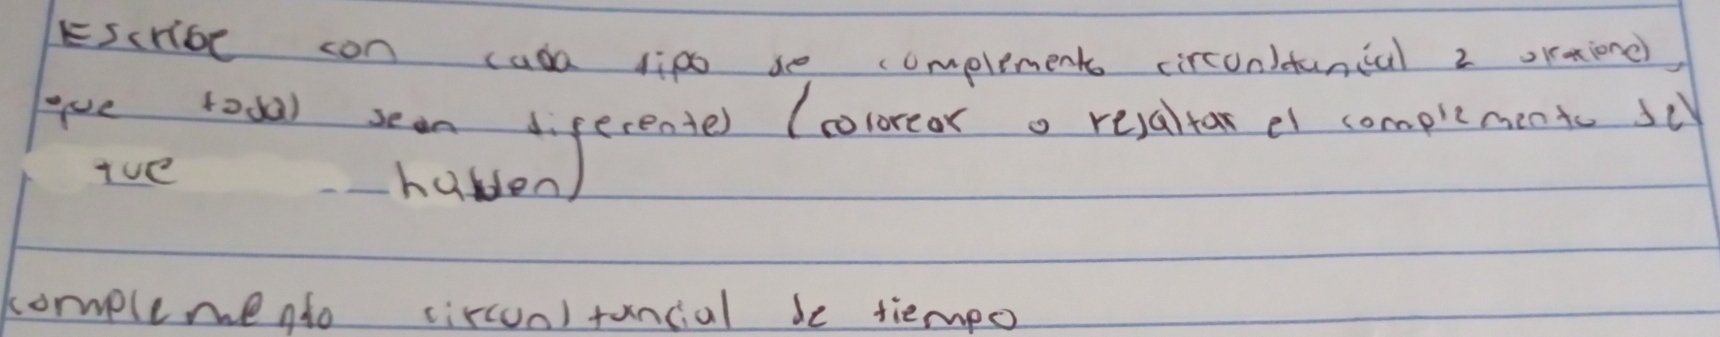 Escribe con cada tipo de complemento circunstancial 2 oraciones,
que todas sean diferentes (colorear o resaltar el complemento del
que hablen)
complemento circunstancial de tiempo